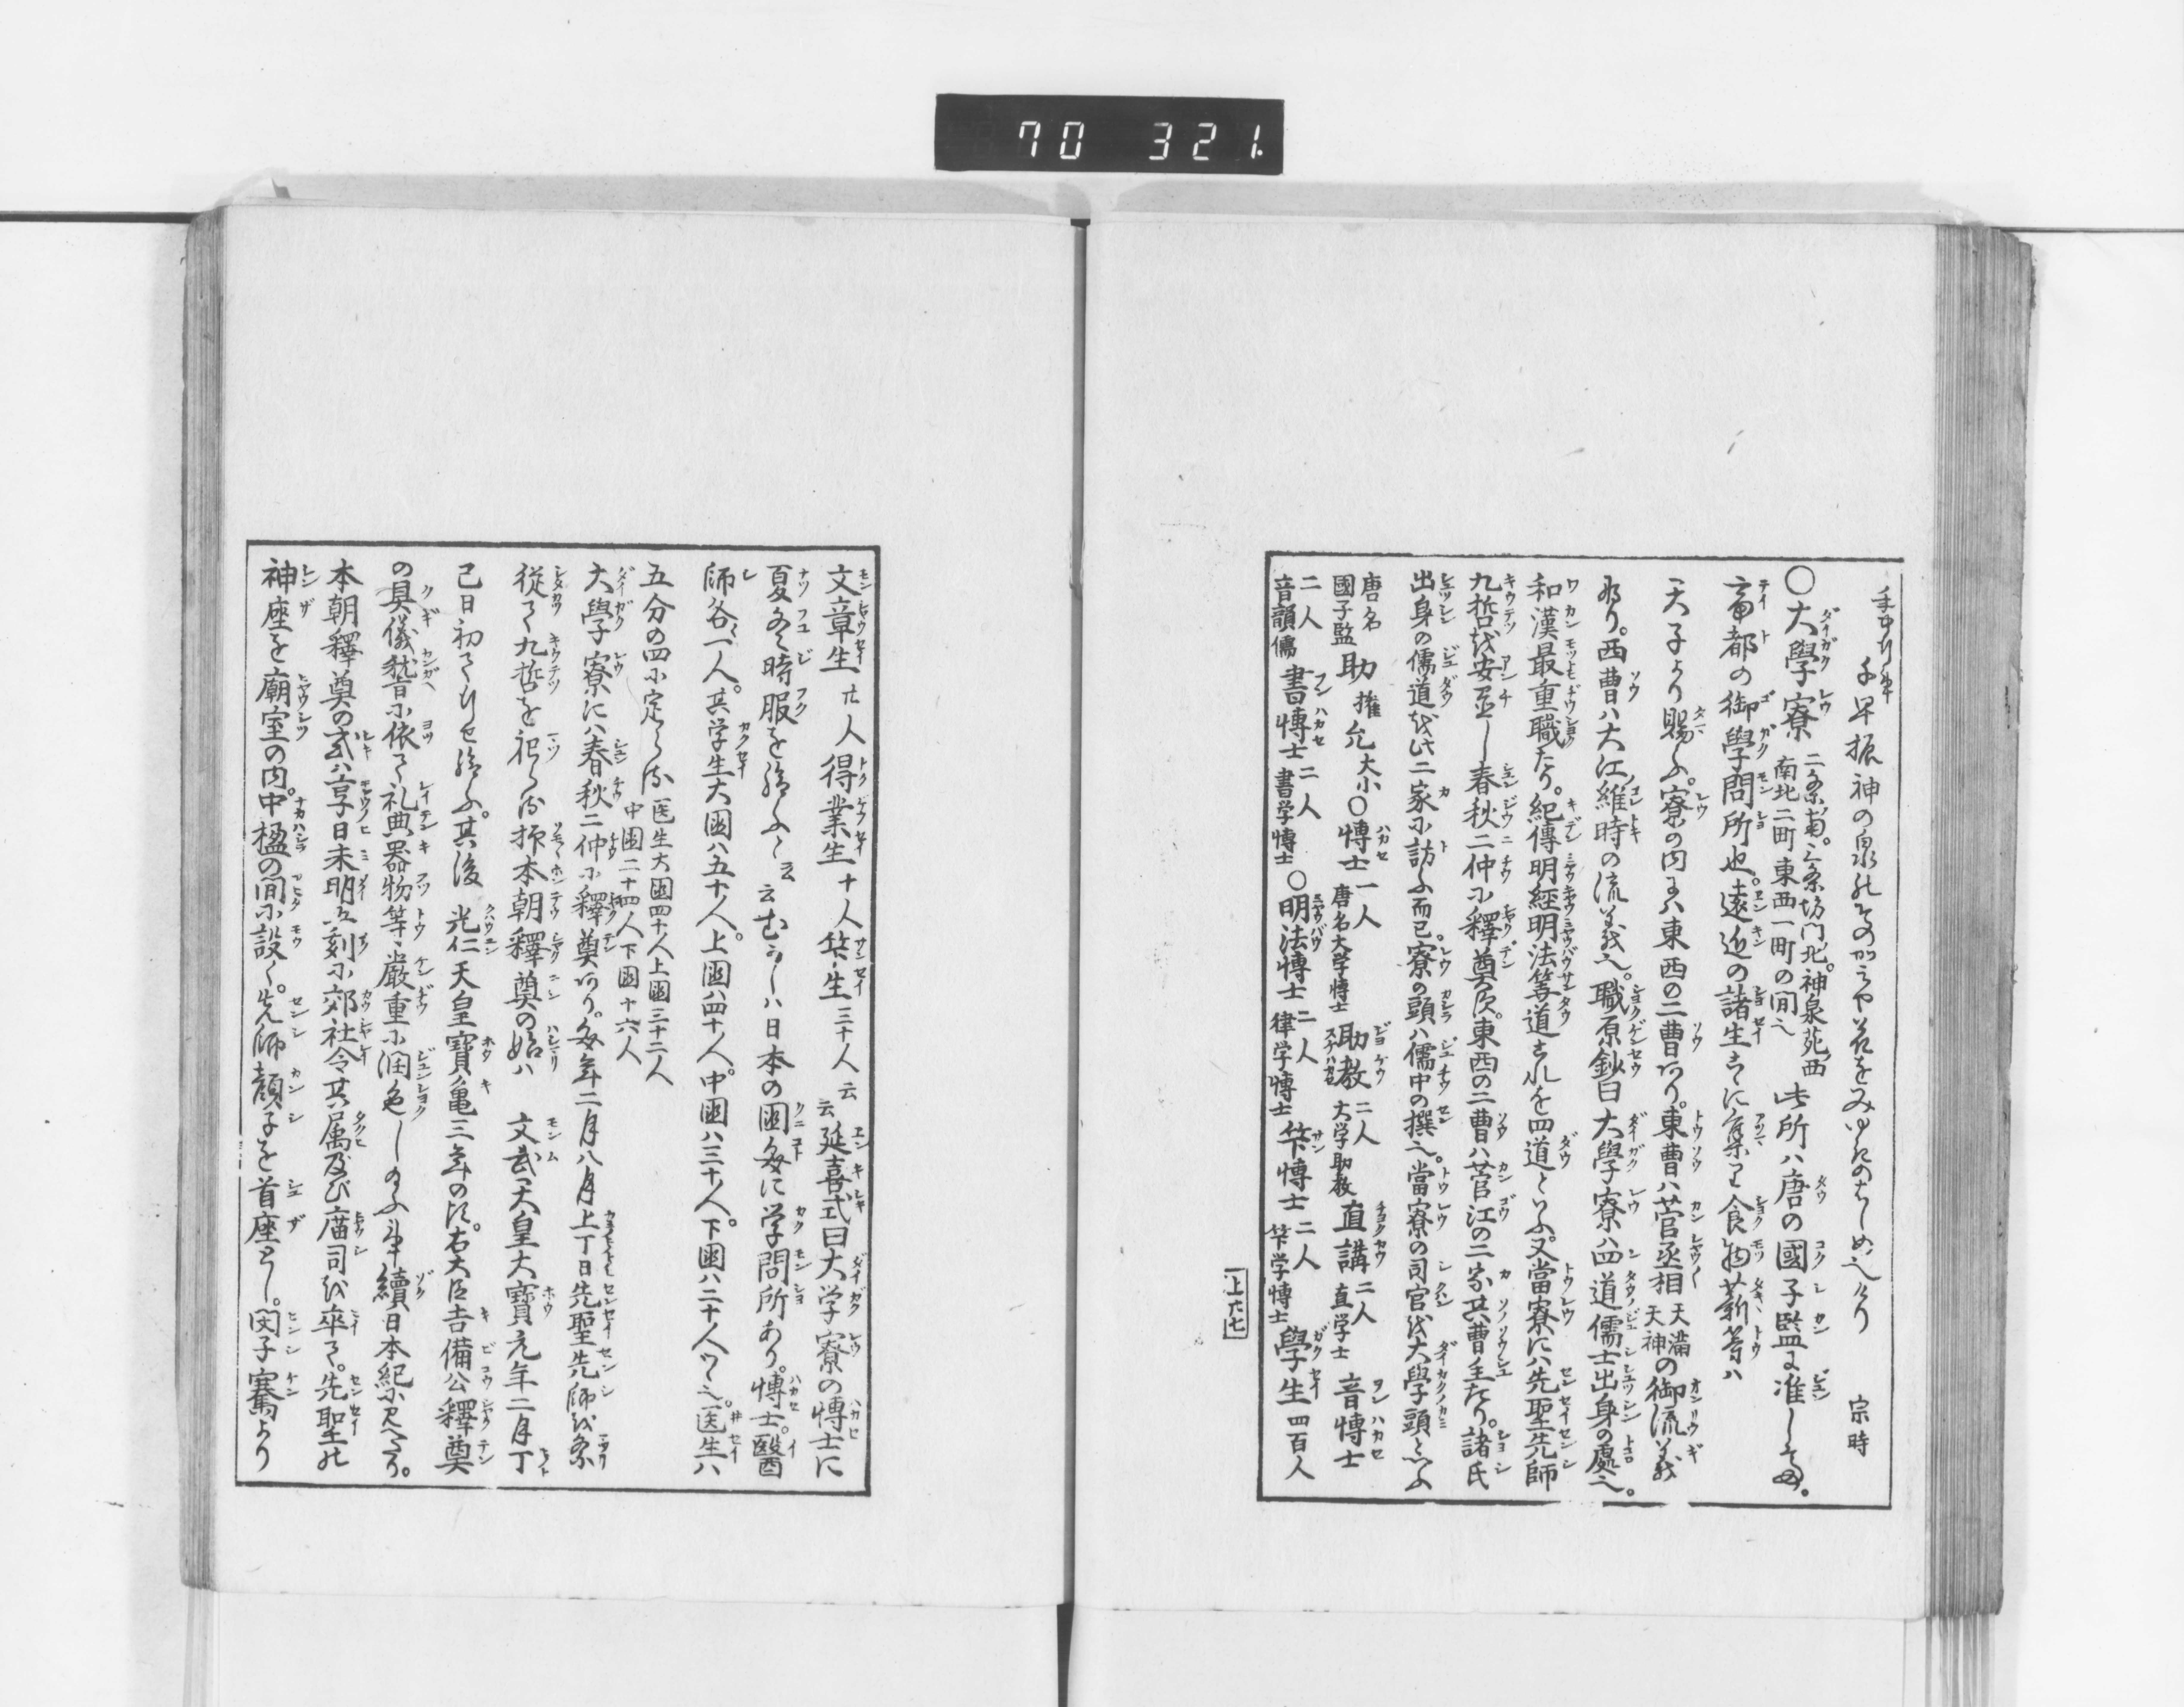 70 321.
千早振神の泉のそのかみや花をみゆきのはしめ也けり 宗時
〇大學寮 二条南。三条坊門北。神泉苑西 南北二町東西一町の間也 此所ハ唐の國子監に准し給。
帝都の御學問所也。遠近の諸生こゝに集り食物薪等ハ
天子より賜ふ。寮の内にハ東西の二曹あり。東曹ハ菅丞相 天満天神 の御流義
なり。西曹ハ大江維時の流義也。職原鈔曰大學寮ハ四道儒士出身の處也。
和漢最重職たり。紀傳明經明法等道これを四道といふ又當寮にハ先聖先師
九哲を安置し春秋二仲に釋奠す。東西の二曹ハ菅江の二家其曹主たり。諸氏
出身の儒道を此二家に訪ふ而已。寮の頭ハ儒中の撰也。當寮の司官を大學頭といふ
唐名國子監 助 權 允 大小 〇博士 一人 唐名大学博士 助教 二人 大学助教 直講 二人 直学士 音博士
二人 音韻儒 書博士 二人 書学博士 〇明法博士 二人 律学博士 竿博士 二人 竿学博士 學生 四百人
上六七
文章生 廿人 得業生 十人 竿生 三十人 云云 延喜式曰大学寮の博士に
夏冬時服を給ふと云云 むかしハ日本の国毎に学問所あり。博士。醫
師各一人。其学生大国ハ五十人。上国ハ四十人。中国ハ三十人。下国ハ二十人つゝ也。医生ハ
五分の四に定らる 医生大国四十人上国三十二人 中国二十四人下国十六人
大學寮にハ春秋二仲に釋奠あり。毎年二月八月上丁日先聖先師を祭
從て九哲を祀らる抑本朝釋奠の始ハ 文武天皇大寶元年二月丁
己日初て行せ給ふ。其後 光仁天皇寶亀三年の比。右大臣吉備公釋奠
の具儀稽古に依て礼典器物等嚴重に潤色しのふ事續日本紀に見へたり。
本朝釋奠の式ハ享日未明五刻に郊社令其属及び廟司を卒て。先聖の
神座を廟室の内。中楹の間に設く。先師顔子を首座とし。閔子騫より